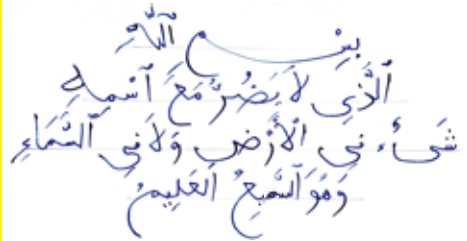 بِسْمِ ٱللَّهِ
ٱلَّذِى لَا يَضُرُّ مَعَ ٱسْمِهِ
شَىْءٌ فِى ٱلْأَرْضِ وَلَا فِى ٱلسَّمَاءِ
وَهُوَ ٱلسَّمِيعُ ٱلْعَلِيمُ